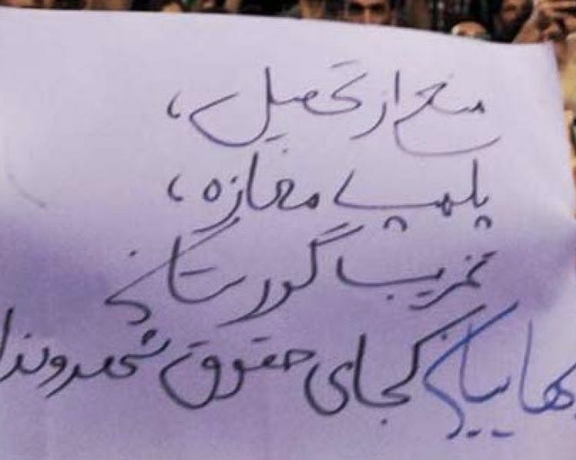 منع از تحصیل،
پلمپ مغازه،
تخریب گورستان
بهاییان کجای حقوق شهروندا